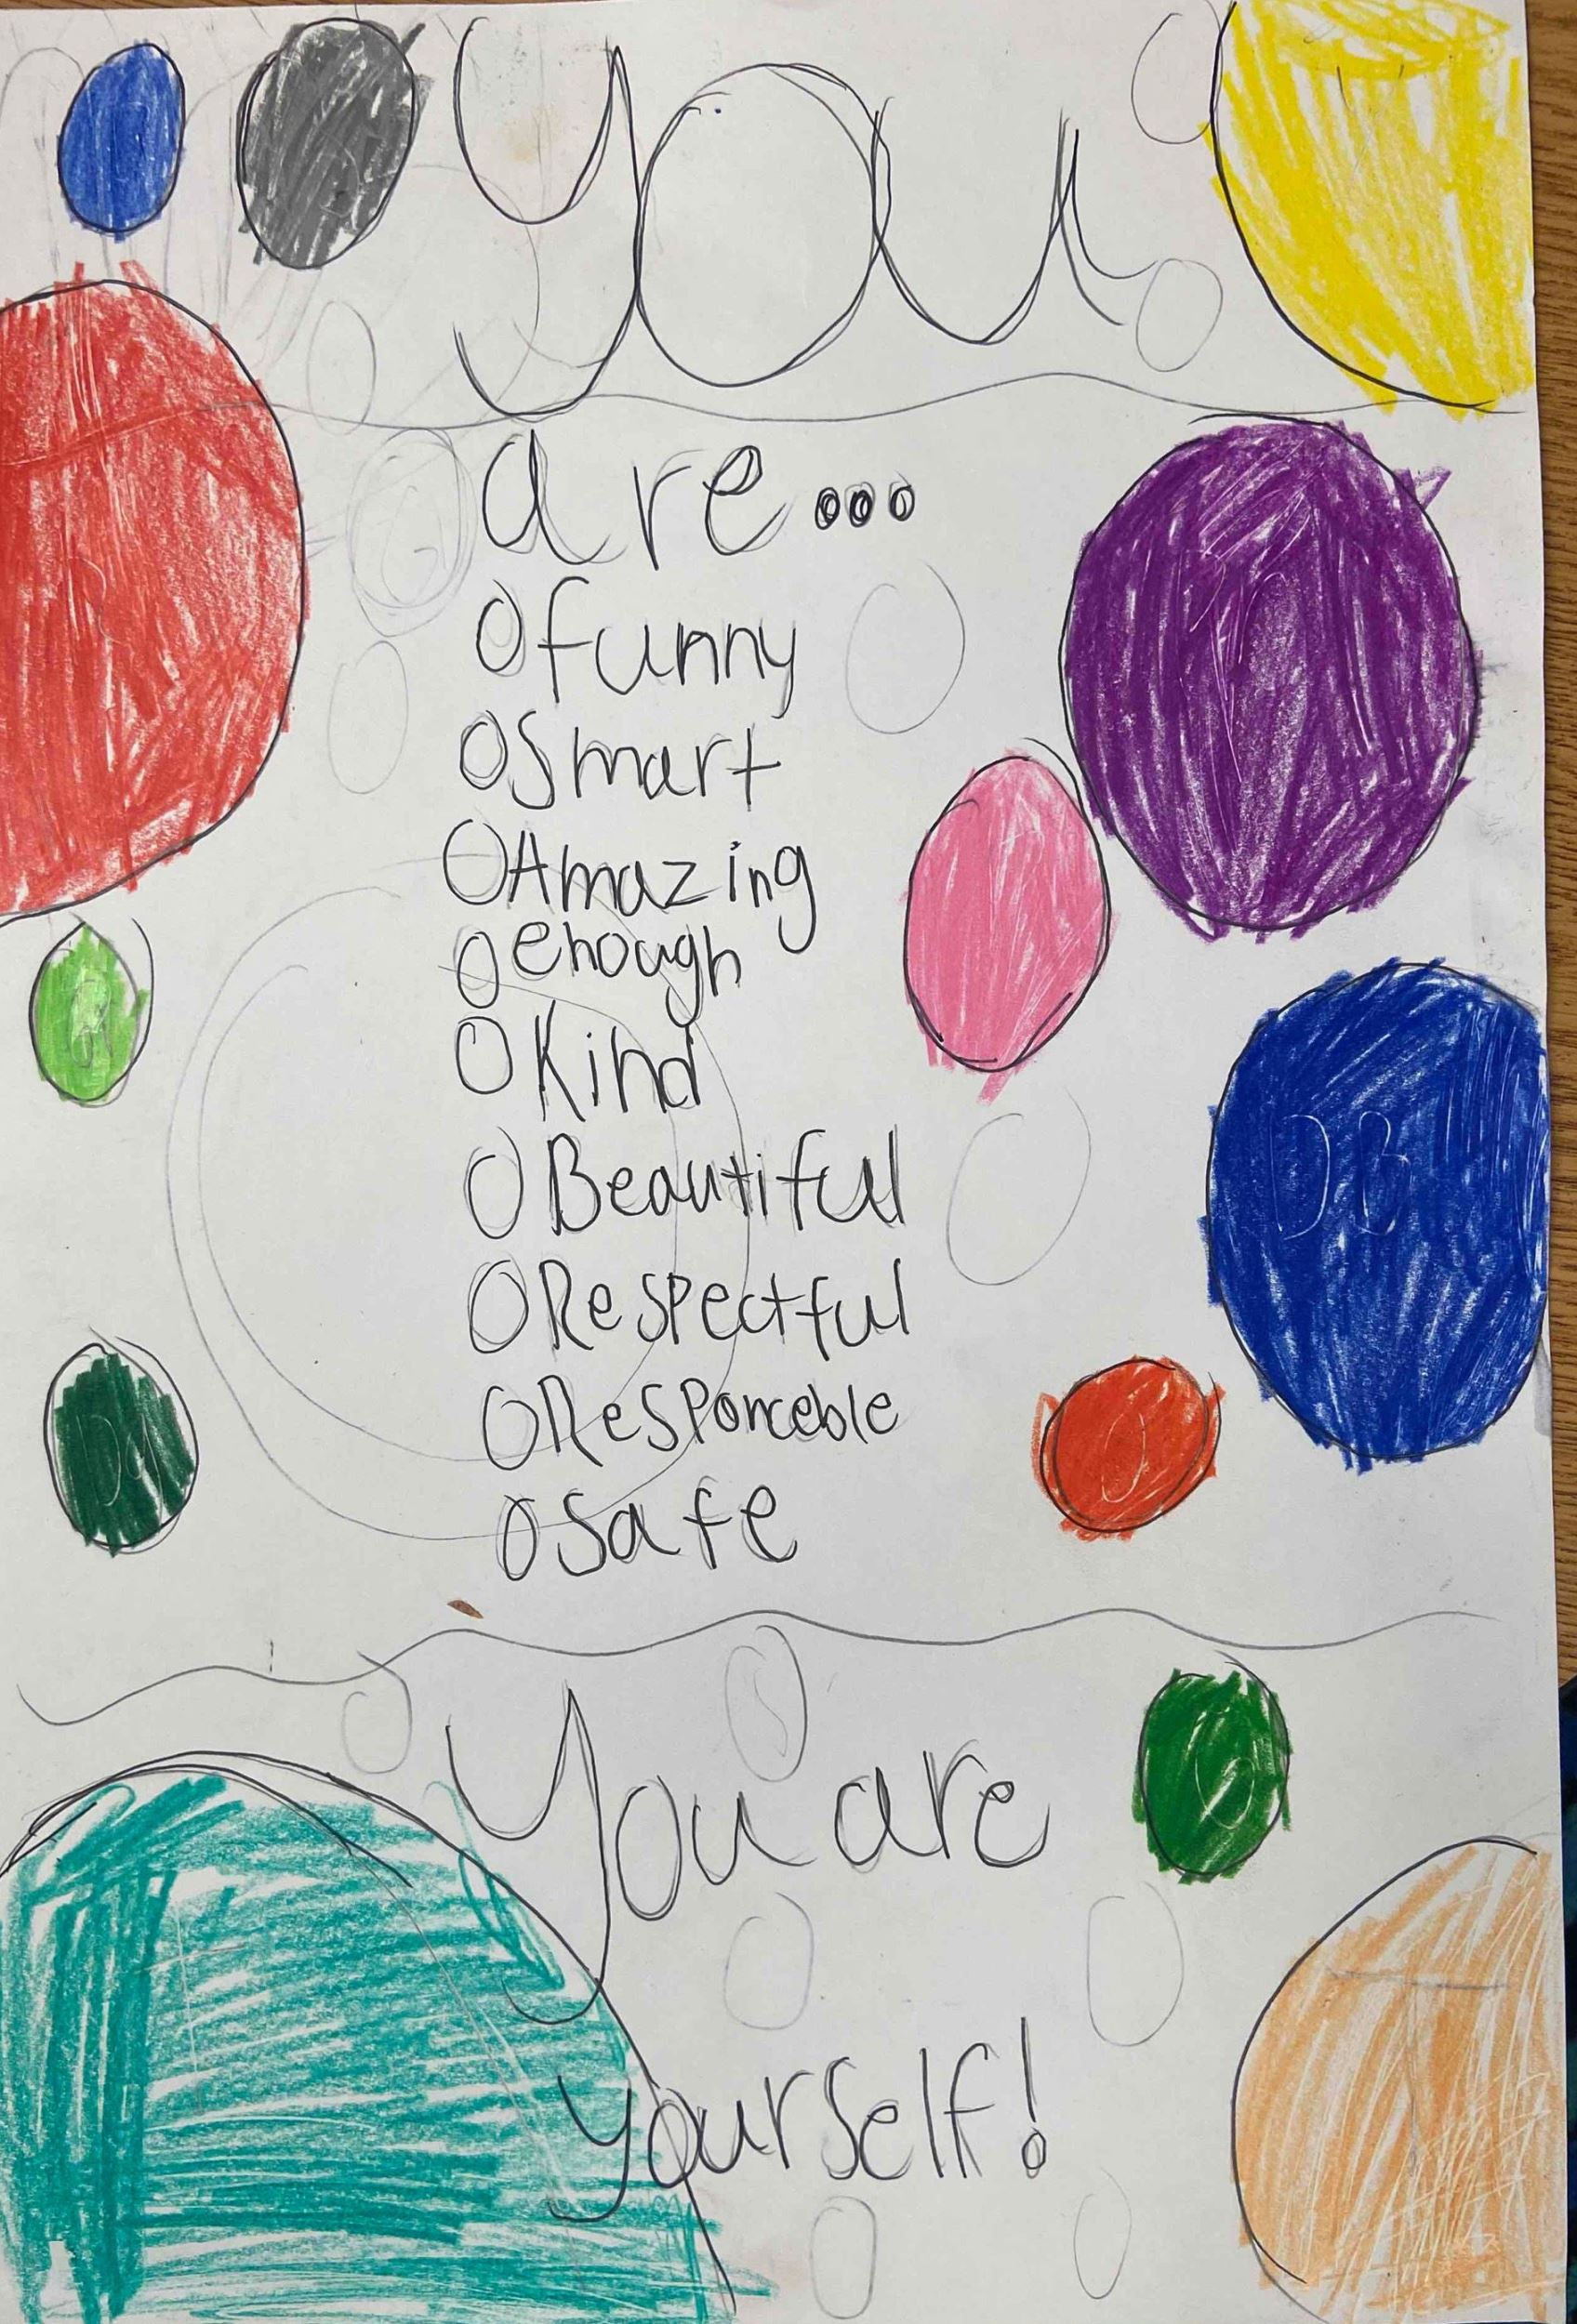 You
are...
funny
Smart
Amazing
enough
Kind
Beautiful
Respectful
Responceble
safe
You are
yourself!
DB